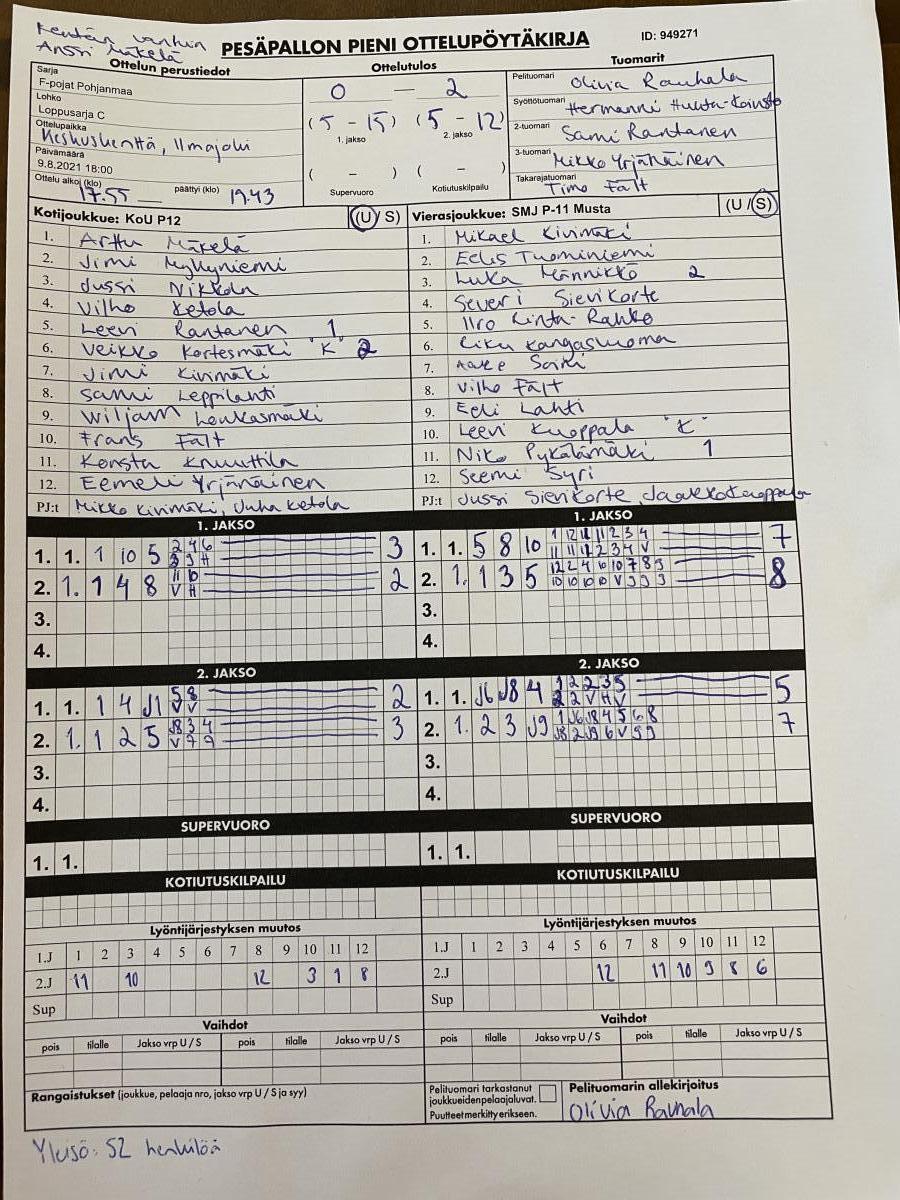 Kentän vanhin
Anssi Mäkelä
PESÄPALLON PIENI OTTELUPÖYTÄKIRJA
ID: 949271
Ottelun perustiedot
Ottelutulos
Tuomarit
Sarja
F-pojat Pohjanmaa
Lohko
Loppusarja C
Ottelupaikka
Keskuskenttä, Ilmajoki
Päivämäärä
9.8.2021 18:00
Ottelu alkoi (klo) 17.55 päättyi (klo) 19.43
0 — 2
(5 - 15) (5 - 12)
1. jakso 2. jakso
( - ) ( - )
Supervuoro Kotiutuskilpailu
Pelituomari Olivia Rauhala
Syöttötuomari Hermanni Huuta-Koivisto
2-tuomari Sami Rantanen
3-tuomari Mikko Yrjänäinen
Takarajatuomari Timo Fält
Kotijoukkue: KoU P12 (U / S)
1. Arttu Mäkelä
2. Jimi Myllyniemi
3. Jussi Nikkola
4. Vilho Ketola
5. Leevi Rantanen 1
6. Veikko Kortesmäki "K" 2
7. Jimi Kivimäki
8. Sami Leppilahti
9. Wiljam Loukasmäki
10. Frans Fält
11. Konsta Knuuttila
12. Eemeli Yrjänäinen
PJ:t Mikko Kivimäki, Juha Ketola
Vierasjoukkue: SMJ P-11 Musta (U / S)
1. Mikael Kivimäki
2. Eelis Tuominiemi
3. Luka Männikkö 2
4. Severi Sievikorte
5. Iiro Rinta-Rahko
6. Riku Kangasluoma
7. Aake Saari
8. Vilho Fält
9. Eeli Lahti
10. Leevi Kuoppala "K"
11. Niko Pykälämäki 1
12. Seemi Syri
PJ:t Jussi Sievikorte, Jaakko Kuoppala
1. JAKSO
1. 1. 1 10 5 2 4 6 3
3 9 H
2. 1. 1 4 8 11 10 2
V H
3.
4.
1. JAKSO
1. 1. 5 8 10 1 12 12 11 2 3 4 7
11 11 12 2 3 4 V
2. 1. 1 3 5 12 2 4 10 10 7 8 9 8
10 10 10 10 V 9 9 9
3.
4.
2. JAKSO
1. 1. 1 4 J1 5 8 2
V V
2. 1. 1 2 5 J8 3 4 3
V 7 9
3.
4.
2. JAKSO
1. 1. J6 J8 4 1 2 2 3 5 5
2 2 V H V
2. 1. 2 3 J9 1 J6 J8 4 5 6 8 7
J8 2 J9 6 V 9 9
3.
4.
SUPERVUORO
1. 1.
SUPERVUORO
1. 1.
KOTIUTUSKILPAILU
KOTIUTUSKILPAILU
Lyöntijärjestyksen muutos
1.J 1 2 3 4 5 6 7 8 9 10 11 12
2.J 11 10 12 3 1 8
Sup
Lyöntijärjestyksen muutos
1.J 1 2 3 4 5 6 7 8 9 10 11 12
2.J 12 11 10 9 8 6
Sup
Vaihdot
pois tilalle Jakso vrp U / S pois tilalle Jakso vrp U / S
Vaihdot
pois tilalle Jakso vrp U / S pois tilalle Jakso vrp U / S
Rangaistukset (joukkue, pelaaja nro, jakso vrp U / S ja syy)
Pelituomari tarkastanut
joukkueidenpelaajaluvat.
Puutteet merkitty erikseen.
Pelituomarin allekirjoitus
Olivia Rauhala
Yleisö: 52 henkilöä